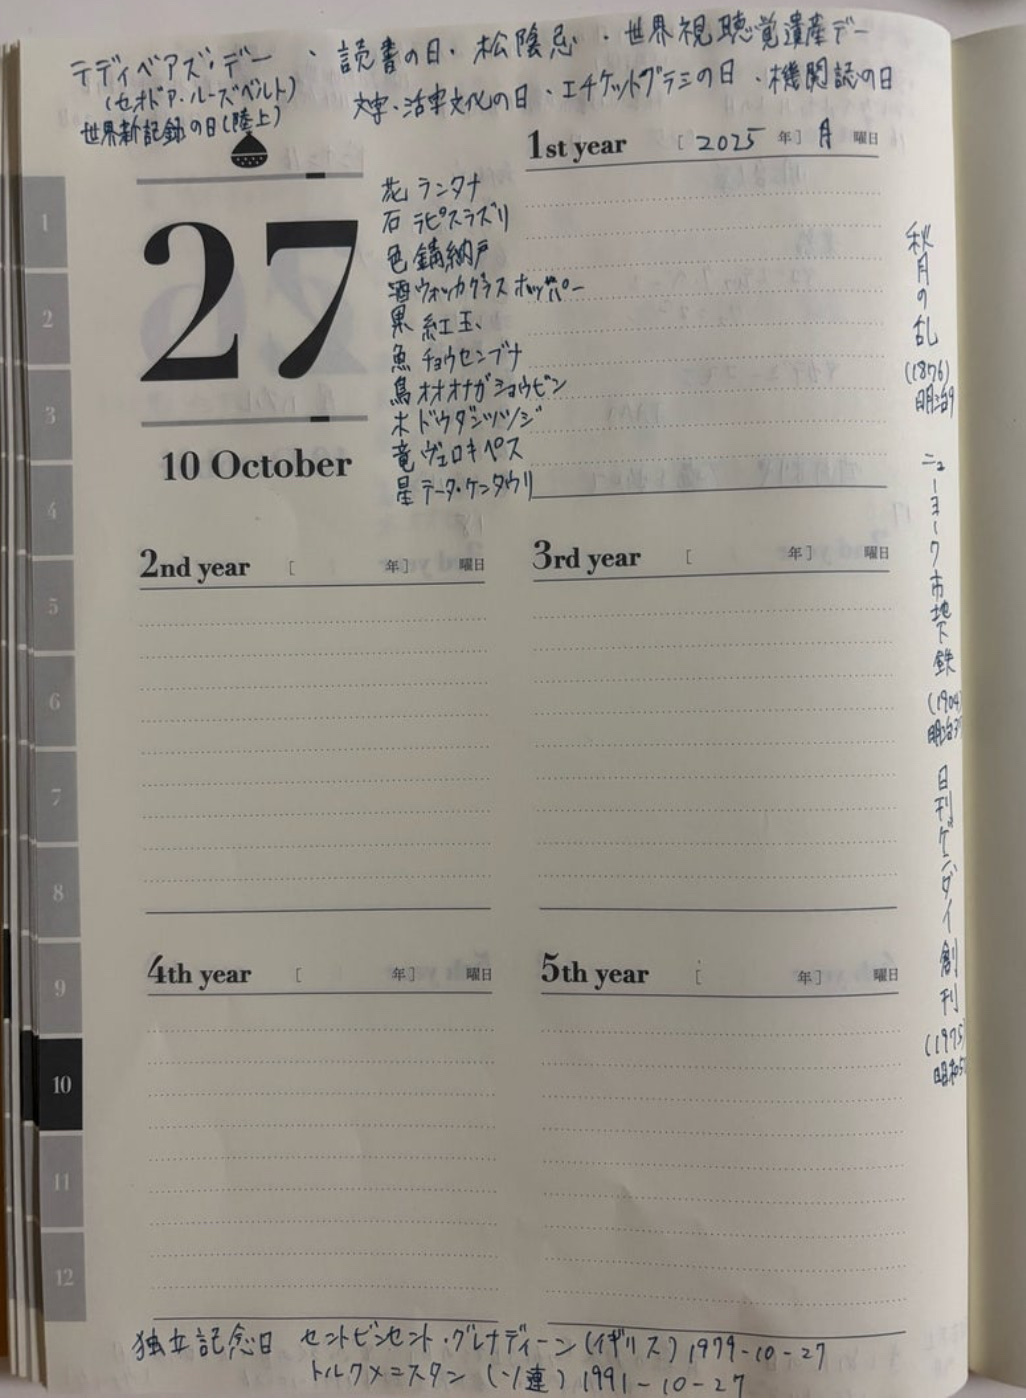 テディベアズ・デー ・読書の日・松陰忌・世界視聴覚遺産デー
(セオドア・ルーズベルト)
文字・活字文化の日・エチケットブラシの日・機関誌の日
世界新記録の日(陸上)
27
10 October
花 ランタナ
石 ラピスラズリ
色 錆納戸
酒 ウォッカグラスホッパー
果 紅玉
魚 チョウセンブナ
鳥 オオオナガショウビン
木 ドウダンツツジ
竜 ヴェロキペス
星 テータ・ケンタウリ
1st year [2025年] 月曜日
2nd year [ 年] 曜日
3rd year [ 年] 曜日
4th year [ 年] 曜日
5th year [ 年] 曜日
秋月の乱
(1876)
明治9
ニューヨーク市地下鉄
(1904)
明治37
日刊ゲンダイ創刊
(1975)
昭和50
1
2
3
4
5
6
7
8
9
10
11
12
独立記念日 セントビンセント・グレナディーン(イギリス)1979-10-27
トルクメニスタン(ソ連)1991-10-27